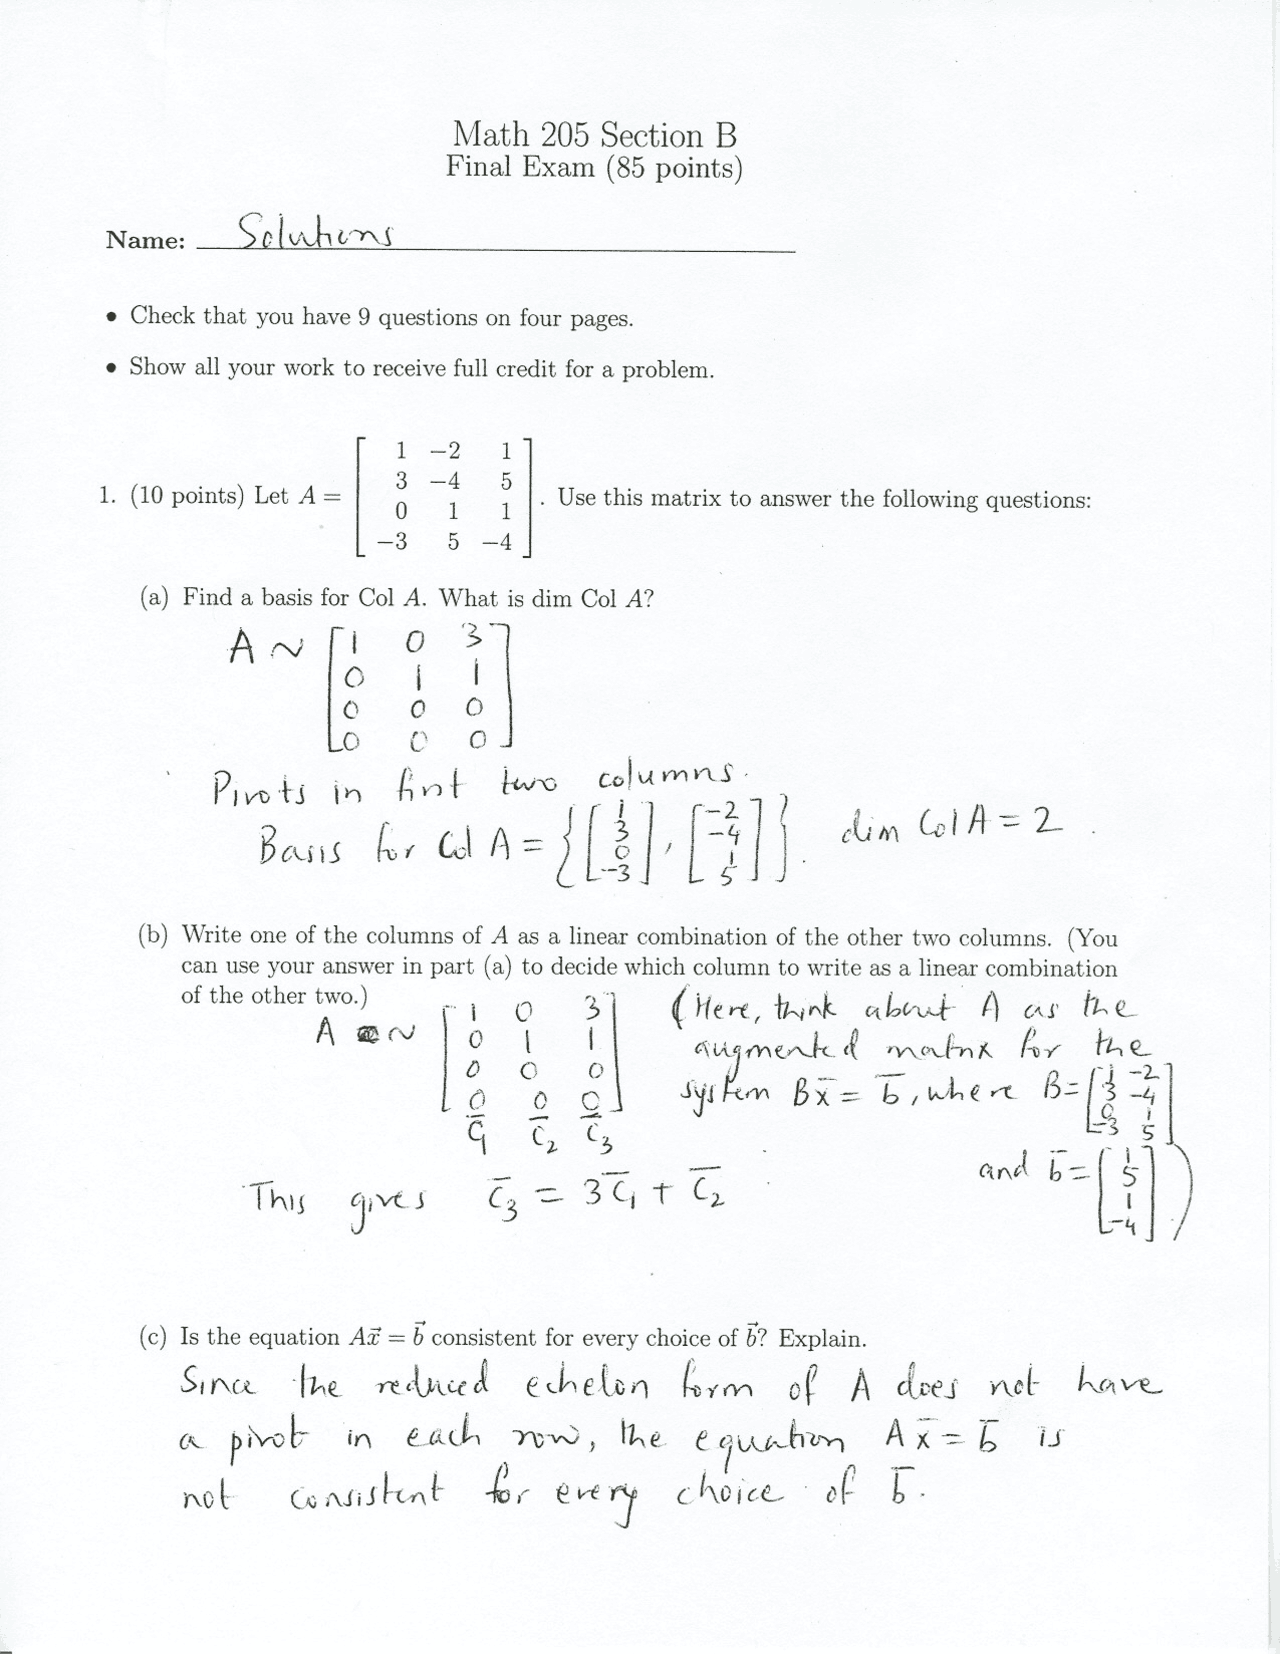 Math 205 Section B
Final Exam (85 points)
Name: Solutions
• Check that you have 9 questions on four pages.
• Show all your work to receive full credit for a problem.
1. (10 points) Let A = [ 1 −2 1
3 −4 5
0 1 1
−3 5 −4 ] . Use this matrix to answer the following questions:
(a) Find a basis for Col A. What is dim Col A?
A ~ [ 1 0 3
0 1 1
0 0 0
0 0 0 ]
Pivots in first two columns.
Basis for Col A = { [ 1 3 0 −3 ] , [ −2 −4 1 5 ] } . dim Col A = 2 .
(b) Write one of the columns of A as a linear combination of the other two columns. (You
can use your answer in part (a) to decide which column to write as a linear combination
of the other two.)
A ~ [ 1 0 3
0 1 1
0 0 0
0 0 0 ]
c̄₁ c̄₂ c̄₃
(Here, think about A as the
augmented matrix for the
system Bx̄ = b̄, where B = [ 1 −2
3 −4
0 1
−3 5 ]
and b̄ = [ 1 5 1 −4 ] )
This gives c̄₃ = 3c̄₁ + c̄₂
(c) Is the equation Ax⃗ = b⃗ consistent for every choice of b⃗? Explain.
Since the reduced echelon form of A does not have
a pivot in each row, the equation Ax̄ = b̄ is
not consistent for every choice of b̄.